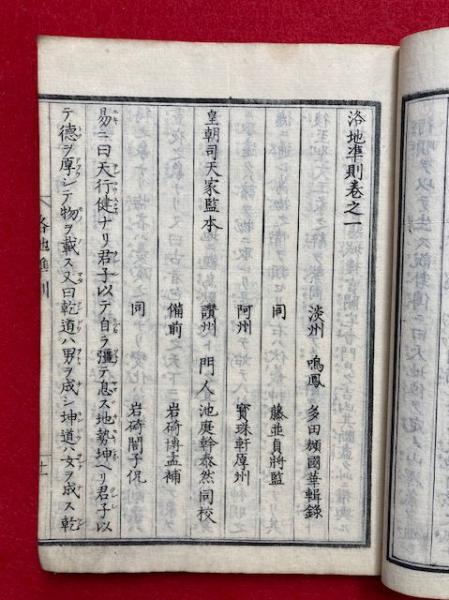 洛地準則卷之一
淡州 鳴鳳 多田頮國華輯錄
同 藤並貞將監
阿州 寶珠軒厚州
皇朝司天家監本 讚州 門人 池庭幹泰然同校
備前 岩碕博孟補
同 岩碕誾子侃
易ニ曰天行健ナリ君子以テ自ラ彊テ息ス地勢坤ヘリ君子以
テ德ヲ厚シテ物ヲ載ス又曰乾道ハ男ヲ成シ坤道ハ女ヲ成ス乾